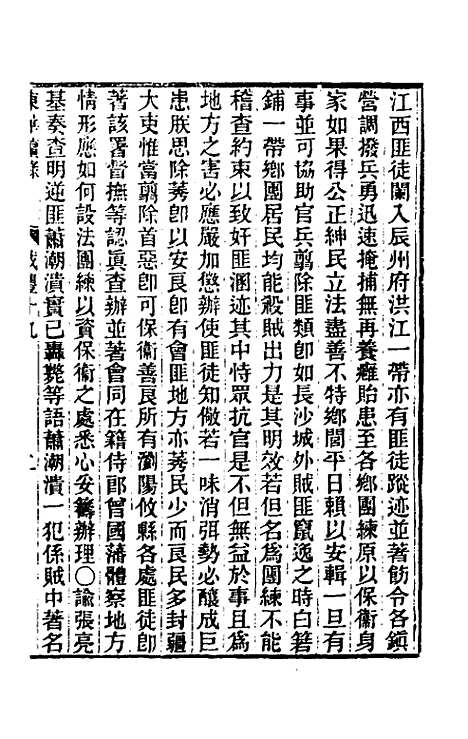 江西匪徒闌入辰州府洪江一帶亦有匪徒蹤迹並著飭令各鎭
營調撥兵勇迅速掩捕無再養癰貽患至各鄉團練原以保衞身
家如果得公正紳民立法盡善不特鄉閭平日賴以安輯一旦有
事並可協助官兵翦除匪類卽如長沙城外賊匪竄逸之時白箬
鋪一帶鄉團居民均能殺賊出力是其明效若但名爲團練不能
稽查約束以致奸匪溷迹其中恃眾抗官是不但無益於事且爲
地方之害必應嚴加懲辦使匪徒知儆若一味消弭勢必釀成巨
患朕思除莠卽以安良卽有會匪地方亦莠民少而良民多封疆
大吏惟當翦除首惡卽可保衞善良所有瀏陽攸縣各處匪徒卽
著該署督撫等認眞查辦並著會同在籍侍郎曾國藩體察地方
情形應如何設法團練以資保衞之處悉心妥籌辦理〇諭張亮
基奏查明逆匪蕭潮潰實已轟斃等語蕭潮潰一犯係賊中著名
東華續錄 咸豐十九